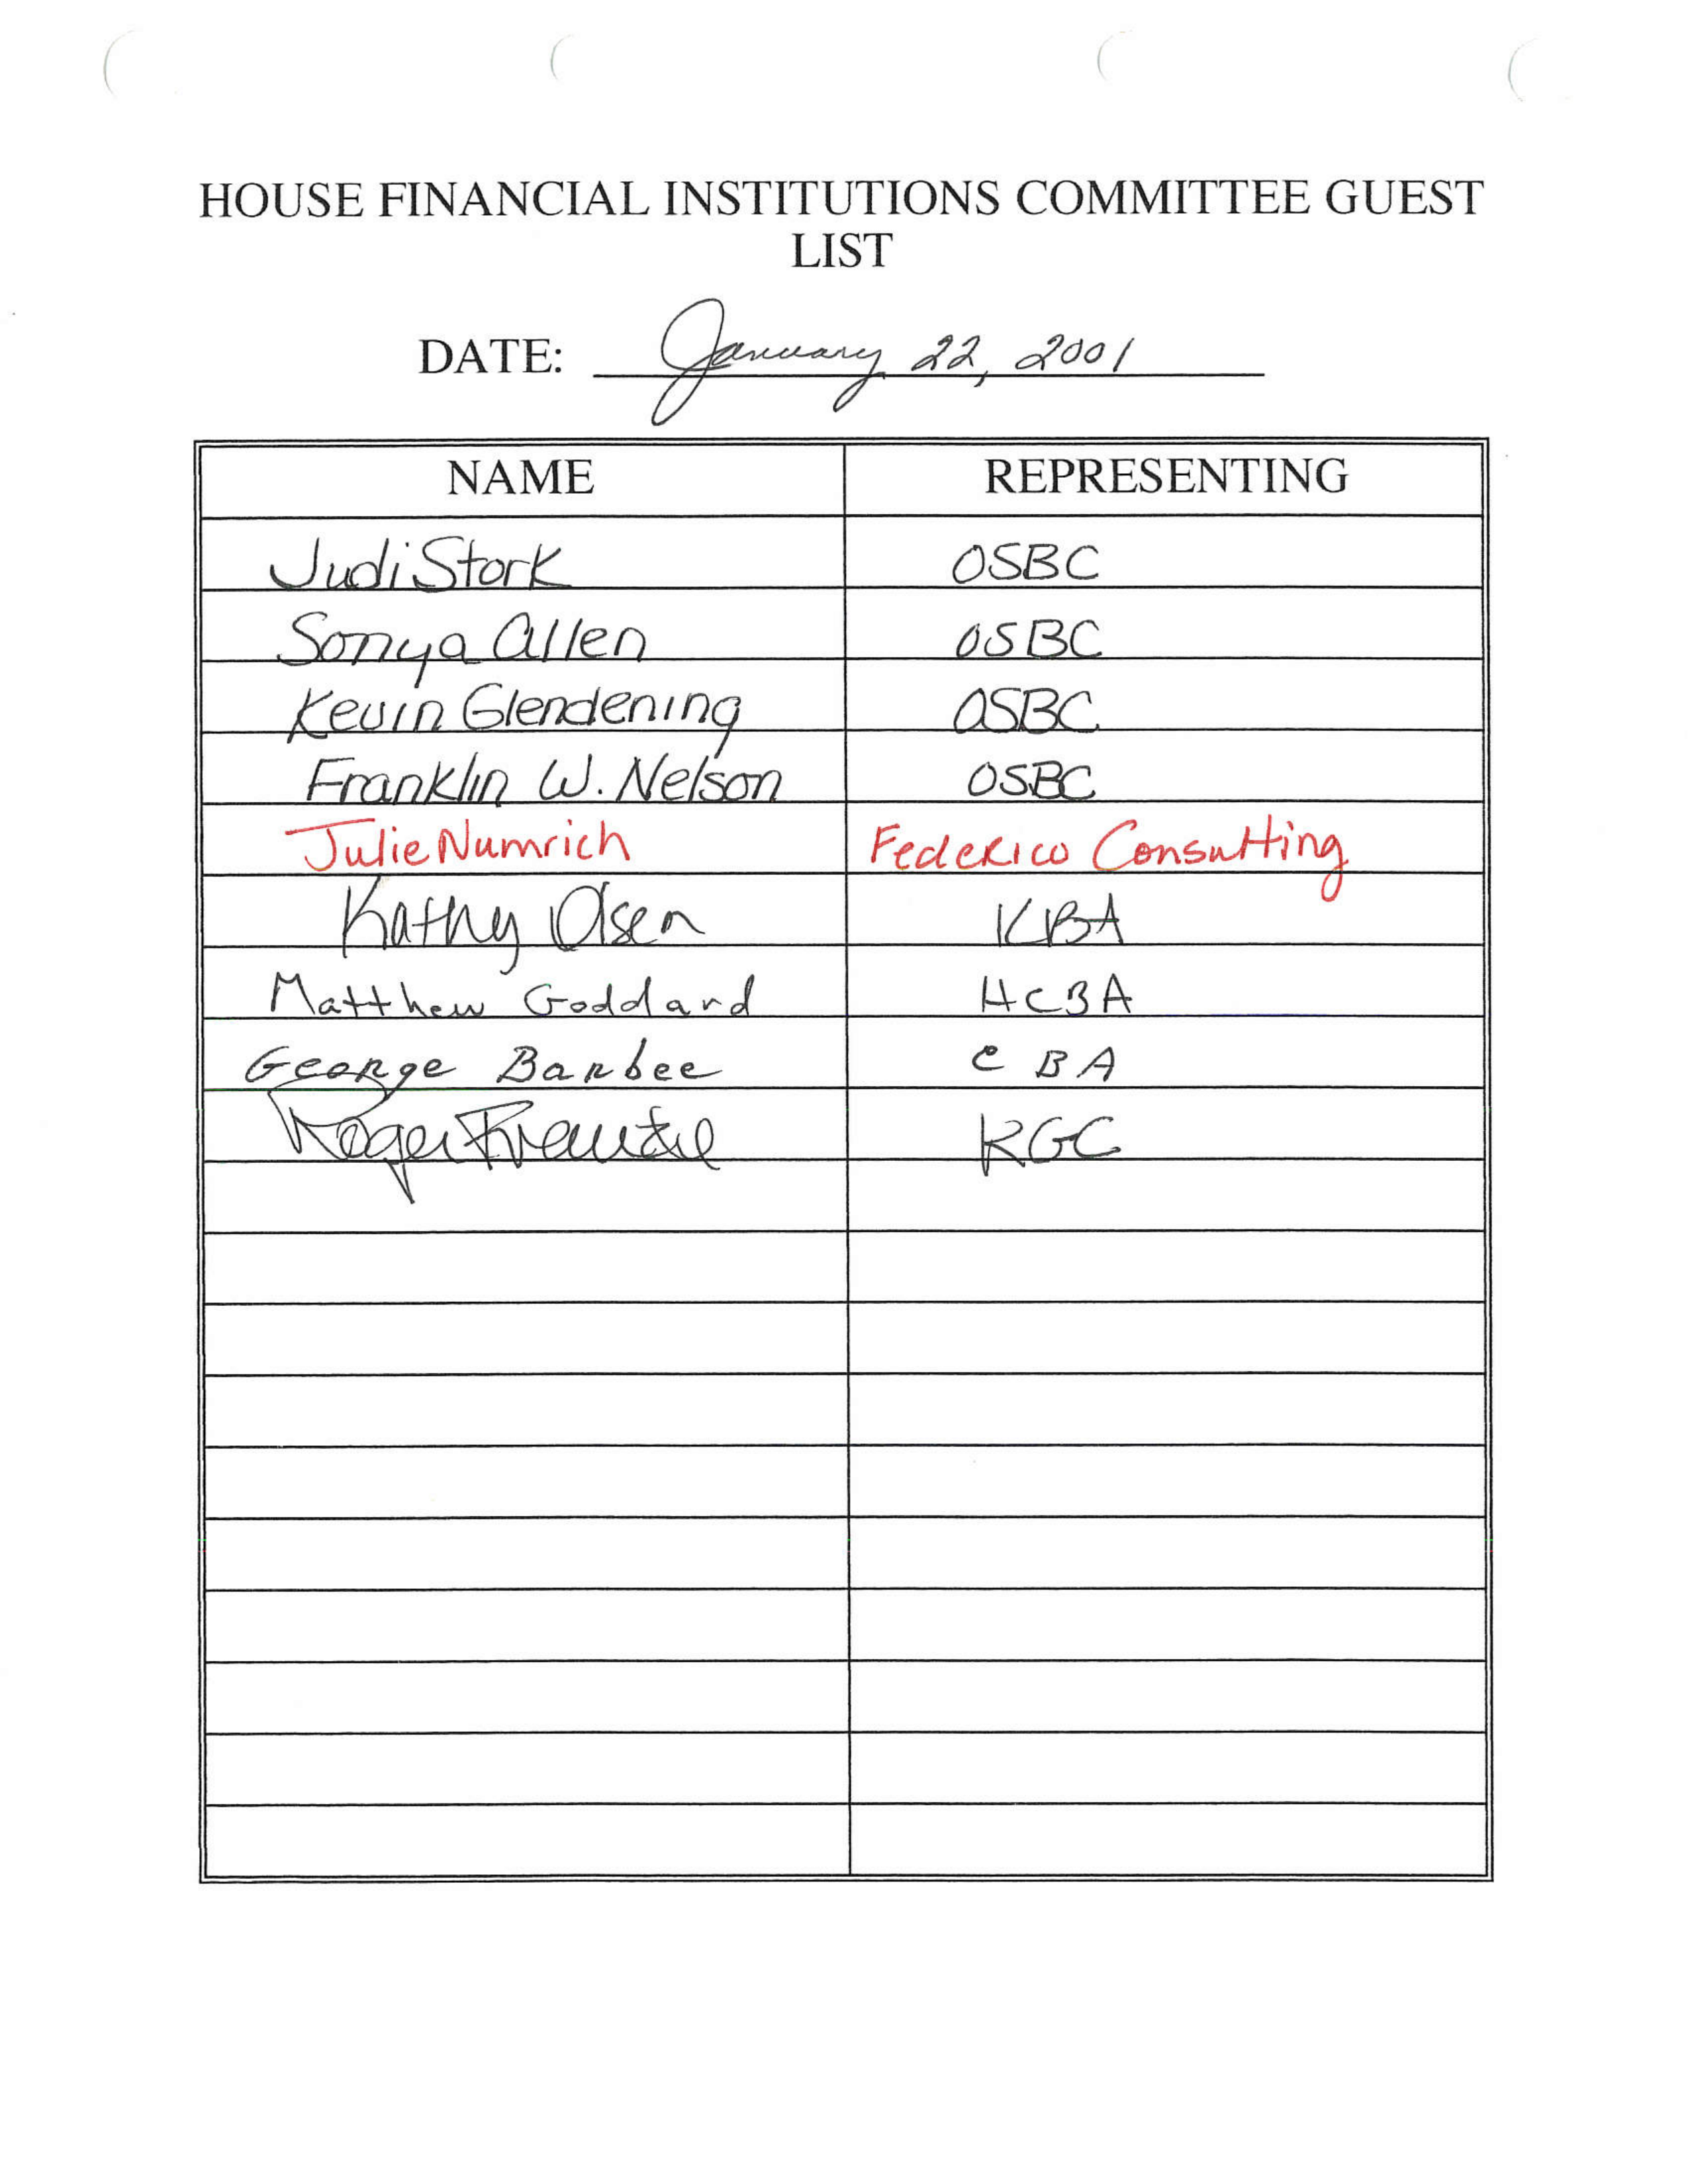 HOUSE FINANCIAL INSTITUTIONS COMMITTEE GUEST
LIST
DATE: January 22, 2001
NAME REPRESENTING
Judi Stork OSBC
Sonya Allen OSBC
Kevin Glendening OSBC
Franklin W. Nelson OSBC
Julie Numrich Federico Consulting
Kathy Olsen KBA
Matthew Goddard HCBA
George Barbee CBA
Roger Franzke KGC